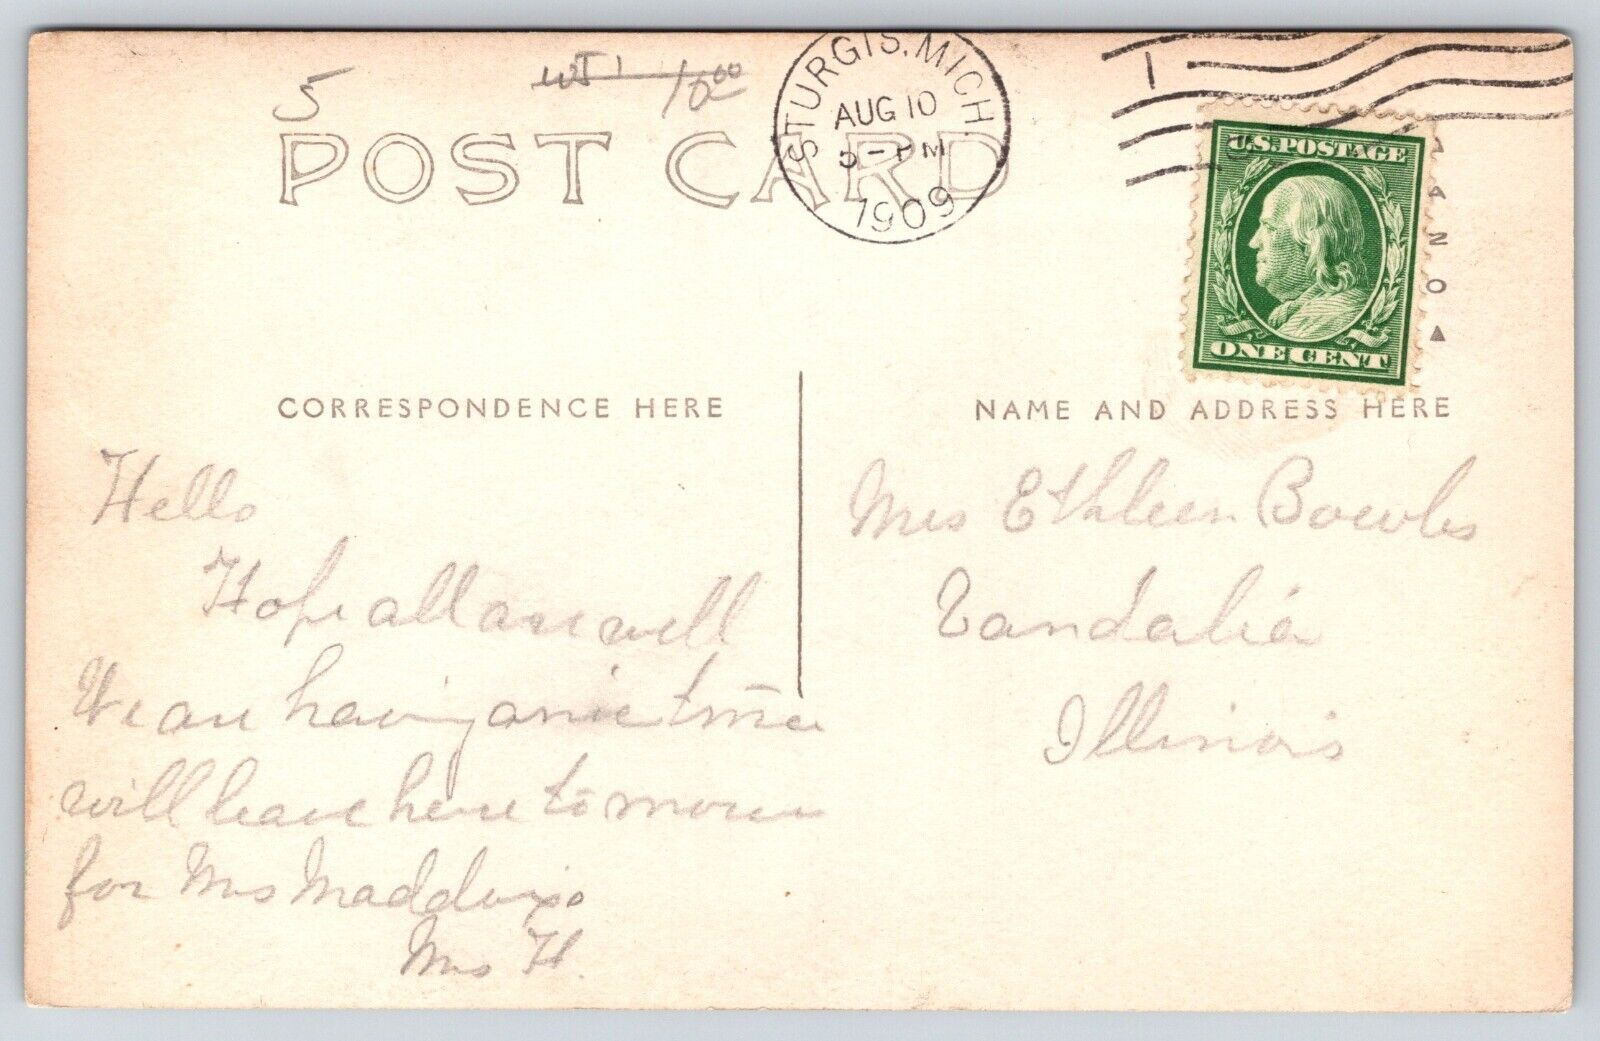 5 10.00
POST CARD
STURGIS, MICH.
AUG 10
5 - PM
1909
U.S. POSTAGE
ONE CENT
AZO
CORRESPONDENCE HERE
NAME AND ADDRESS HERE
Hello
Hope all are well
We are having a nice time
will leave here tomorrow
for Mrs
Mrs H.
Mrs Ethleen Bowles
Vandalia
Illinois